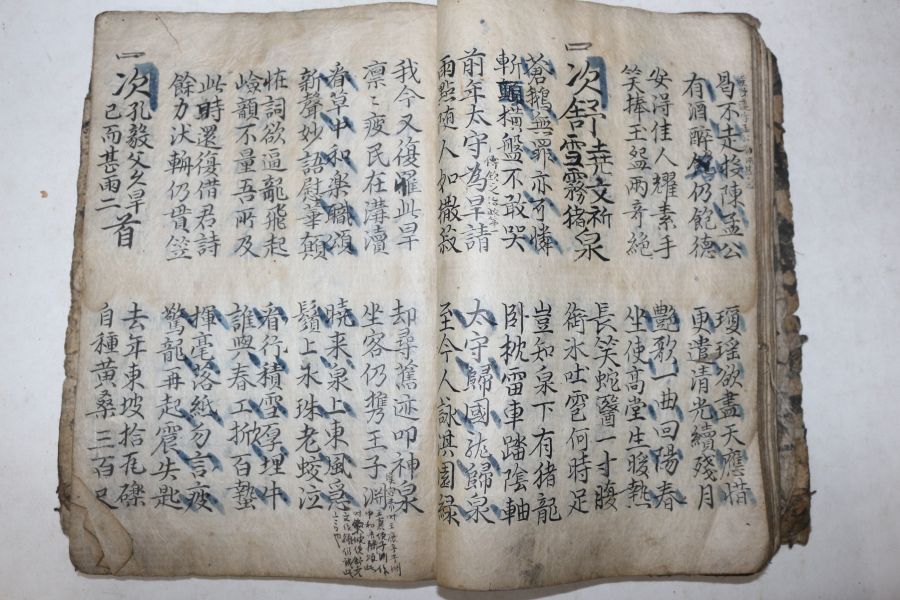 曷不走投陳孟公
有酒醉客仍飽德
瓊瑤欲盡天應惜
更遣清光續殘月
安得佳人耀素手
笑捧玉盌兩奇絕
艷歌一曲回陽春
坐使高堂生暖熱
一次舒堯文祈雪霧猪泉
長笑蛇醫一寸腹
銜氷吐雹何時足
蒼鵝無罪亦可憐
斬頭橫盤不敢哭
豈知泉下有猪龍
卧枕雷車踏陰軸
前年太守為旱請
雨點随人如撒菽
太守歸國龍歸泉
至今人詠淇園綠
我今又復罹此旱
凛々疲民在溝瀆
却尋舊迹叩神泉
坐客仍携王子淵
看草中和樂職頌
新聲妙語慰華顛
曉来泉上東風急
鬚上氷珠老蛟泣
怪詞欲逼龍飛起
險韻不量吾所及
看行積雪厚埋牛
誰與春工掀百蟄
此時還復借君詩
餘力汰輈仍貫笠
揮毫落紙勿言疲
驚龍再起震失匙
一次孔毅父久旱已而甚雨二首
去年東坡拾瓦礫
自種黃桑三百尺